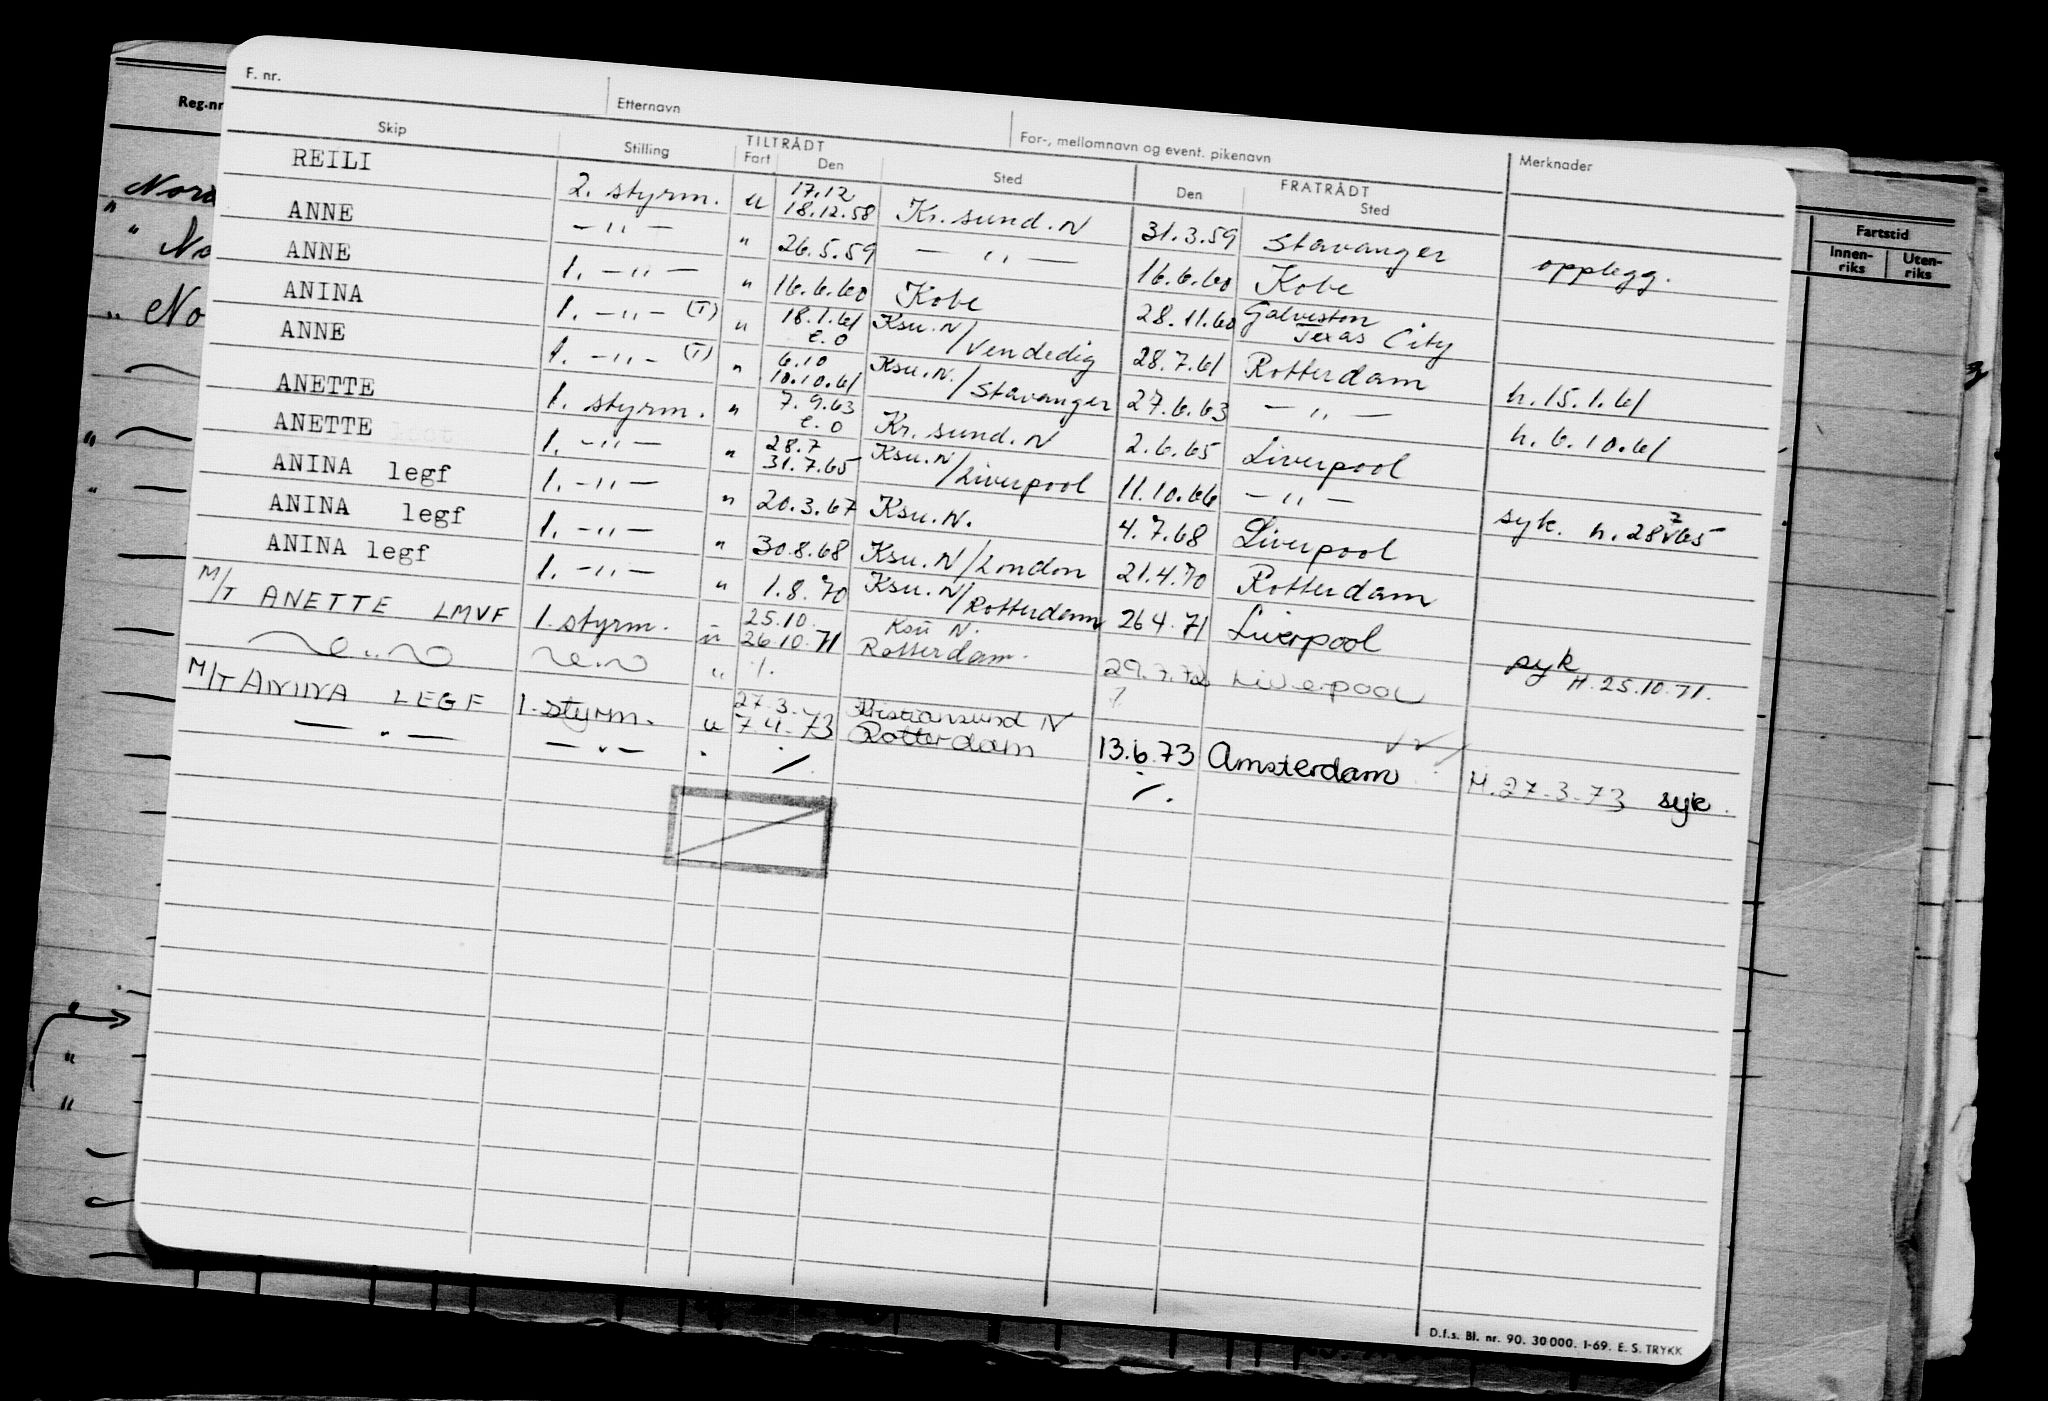 F. nr. Etternavn For-, mellomnavn og event. pikenavn Merknader
Skip Stilling TILTRÅDT Fart Den Sted FRATRÅDT Den Sted
REILI 2. styrm. u 17.12 18.12.58 Kr.sund.N 31.3.59 Stavanger opplegg.
ANNE -"- " 26.5.59 -"- 16.6.60 Kobe
ANNE 1. -"- " 16.6.60 Kobe 28.11.60 Galveston Texas City
ANINA 1. -"- (T) u 18.1.61 e.o Ksu.N/Vendedig 28.7.61 Rotterdam h.15.1.61
ANNE 1. -"- (T) " 6.10 10.10.61 Ksu.N./Stavanger 27.6.63 -"- h.6.10.61
ANETTE 1. styrm. " 7.9.63 e.o Kr.sund.N 2.6.65 Liverpool
ANETTE 1. -"- " 28.7 31.7.65 Ksu.N/Liverpool 11.10.66 -"- syk. h.28 7 65
ANINA legf 1. -"- " 20.3.67 Ksu.N. 4.7.68 Liverpool
ANINA legf 1. -"- " 30.8.68 Ksu.N/London 21.4.70 Rotterdam
ANINA legf 1. -"- " 1.8.70 Ksu.N/Rotterdam 26 4.71 Liverpool
M/T ANETTE LMVF 1. styrm. u 25.10. 26.10.71 Ksu N. Rotterdam. Liverpool syk H.25.10.71.
" " ./.
M/T ANINA LEGF 1. styrm. u 27.3. 7.4.73 Kristiansund N Rotterdam 13.6.73 Amsterdam H.27.3.73 syk.
-"- -"- " ./. ./.
D.f.s. Bl. nr. 90. 30 000. 1-69. E. S. TRYKK
Reg.nr
"
"
Fartstid
Innen-riks Uten-riks